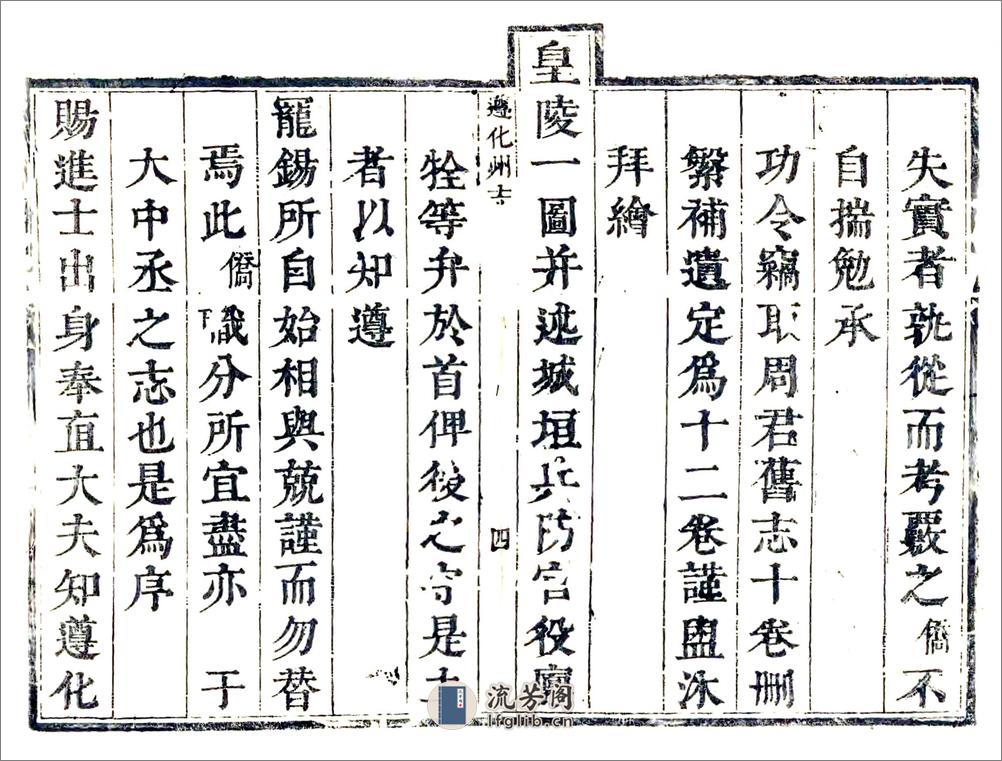 失實者孰從而考覈之僑不
自揣勉承
功令竊取周君舊志十卷刪
繁補遺定爲十二卷謹盥沐
拜繪
皇陵一圖并述城垣兵防官役
遵化州志
四
牲等弁於首俾後之守是土
者以知遵
寵錫所自始相與兢謹而勿替
焉此僑職分所宜盡亦于
大中丞之志也是爲序
賜進士出身奉直大夫知遵化
流芳阁
lfglib.cn